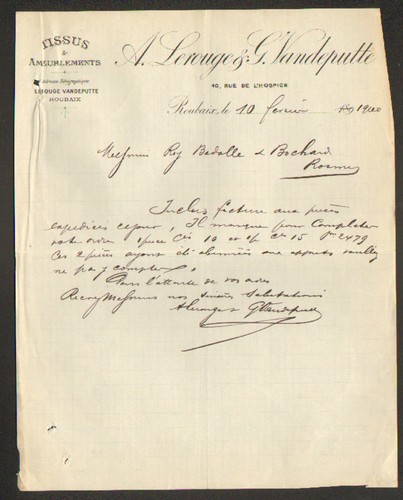 TISSUS
&
AMEUBLEMENTS
Adresse Télégraphique
LEROUGE VANDEPUTTE
ROUBAIX
A. Lerouge & G. Vandeputte
40, RUE DE L'HOSPICE
Roubaix, le 10 fevrier 1900
Messieurs Roy Badolle & Bochard
Roanne
Inclus facture aux pièces
expediées ce jour, Il manque pour Completer
votre ordre 1 pièce 10 15 2479
Ces 2 pièces ayant été abimées aux apprets veuillez
ne pas y compter.
Dans l'attente de vos ordres
Recevez Messieurs nos sincères Salutations
A Lerouge & G Vandeputte